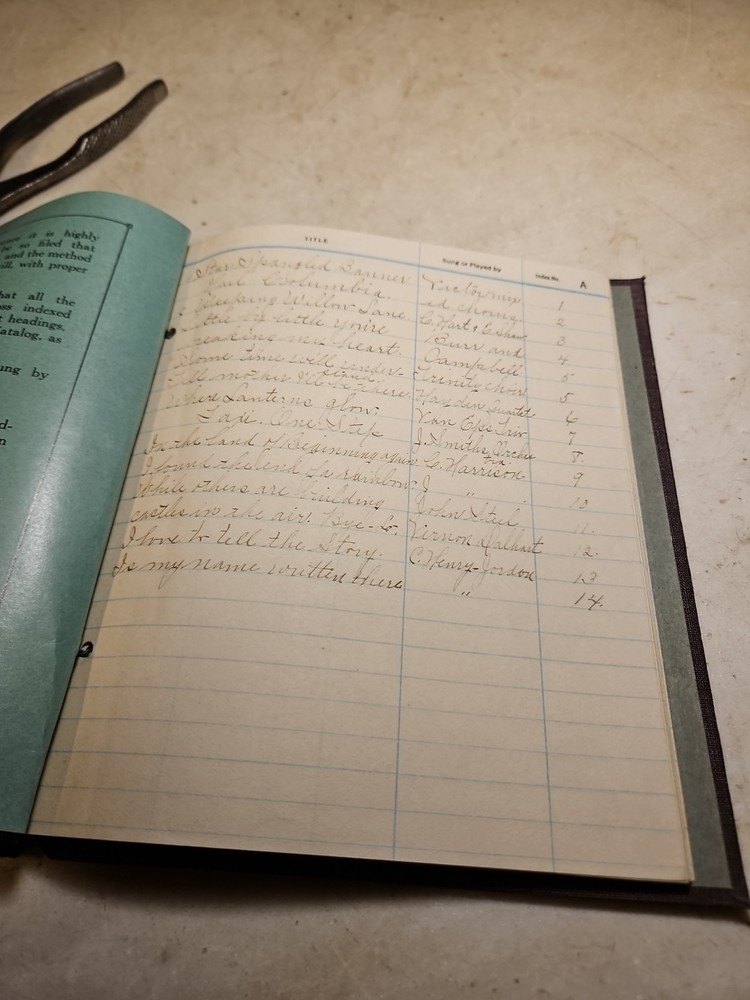 ere it is highly
be so filed that
and the method
ill, with proper
hat all the
oss indexed
t headings.
atalog, as
ung by
d-
n
TITLE Sung or Played by Index No. A
Star Spangled Banner Victor mix 1
Hail Columbia ed chorus 2
Weeping Willow Lane. C. Hart & E. Shaw 3
Little by little you're Burr and 4
breaking my heart. Campbell 5
Some time will under- Trinity choir 5
stand
Tell mother I'll be there Hayden Quartet 6
Where Lanterns glow. Van Eps Trio 7
One Step J. Smiths Orches 8.
tra
In the Land of Beginning again C. Harrison 9
I found the end of a rainbow J " 10
While others are building John Steel 11.
castles in the air. Bye-Lo. Vernon Dalhart 12.
I love to tell the Story. C. Henry-Jordon 13
Is my name written there " 14.